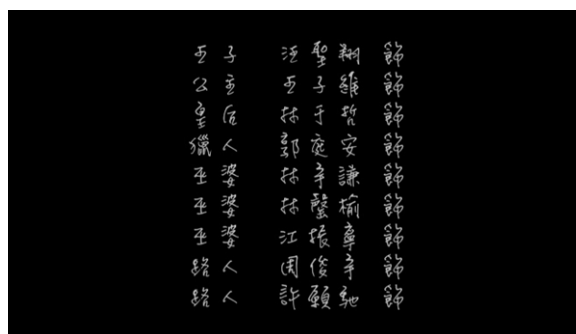 王子 汪聖翔 飾
公主 王子維 飾
皇后 林于哲 飾
獵人 郭庭安 飾
巫婆 林辛謙 飾
巫婆 林馨榆 飾
巫婆 江振寧 飾
路人 周俊辛 飾
路人 許願馳 飾